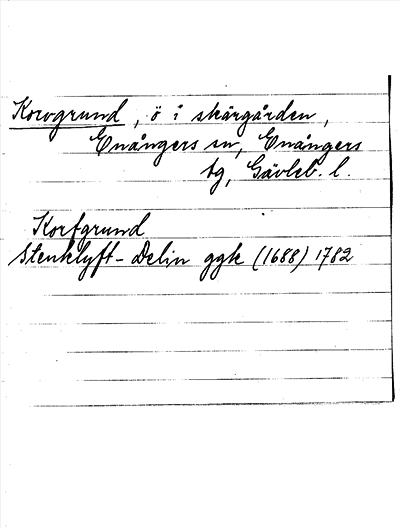 Korvgrund, ö i skärgården,
Enångers sn, Enångers
tg, Gävleb. l.
Korfgrund
Stenklyft-Delin ggk (1688) 1782